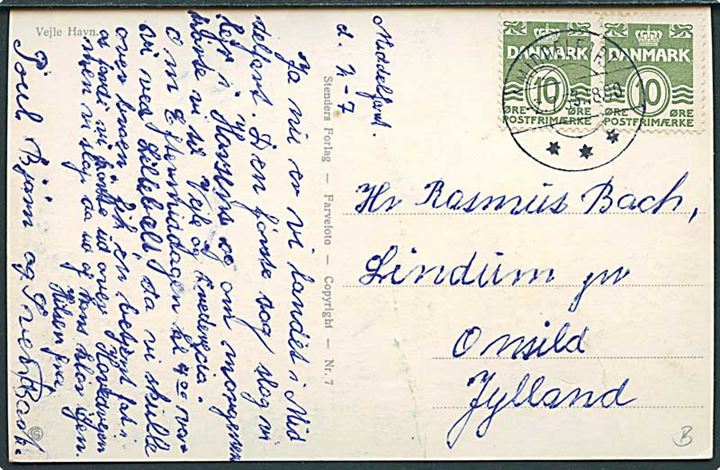 Vejle Havn.
Middelfart.
d. 2-7
Ja nu er vi landet i Mid
delfart. Den første dag slog vi
lejr i Horsens og om morgenen
vi til Vejle og Fredericia.
Om Eftermiddagen kl 4⁰⁰ var
vi ved Lillebælt da vi skulle
over broen fik en betjent fat i
os fordi vi ud over
men vi slap da ud og hans igen.
Hilsen fra
Poul Bjørn og Svend Bach.
Stenders Forlag — Farvefoto — Copyright — Nr. 7
DANMARK
10
ØRE ØRE
POSTFRIMÆRKE
DANMARK
10
ØRE ØRE
POSTFRIMÆRKE
Hr Rasmus Bach,
Lindum pr
Onsild
Jylland
B